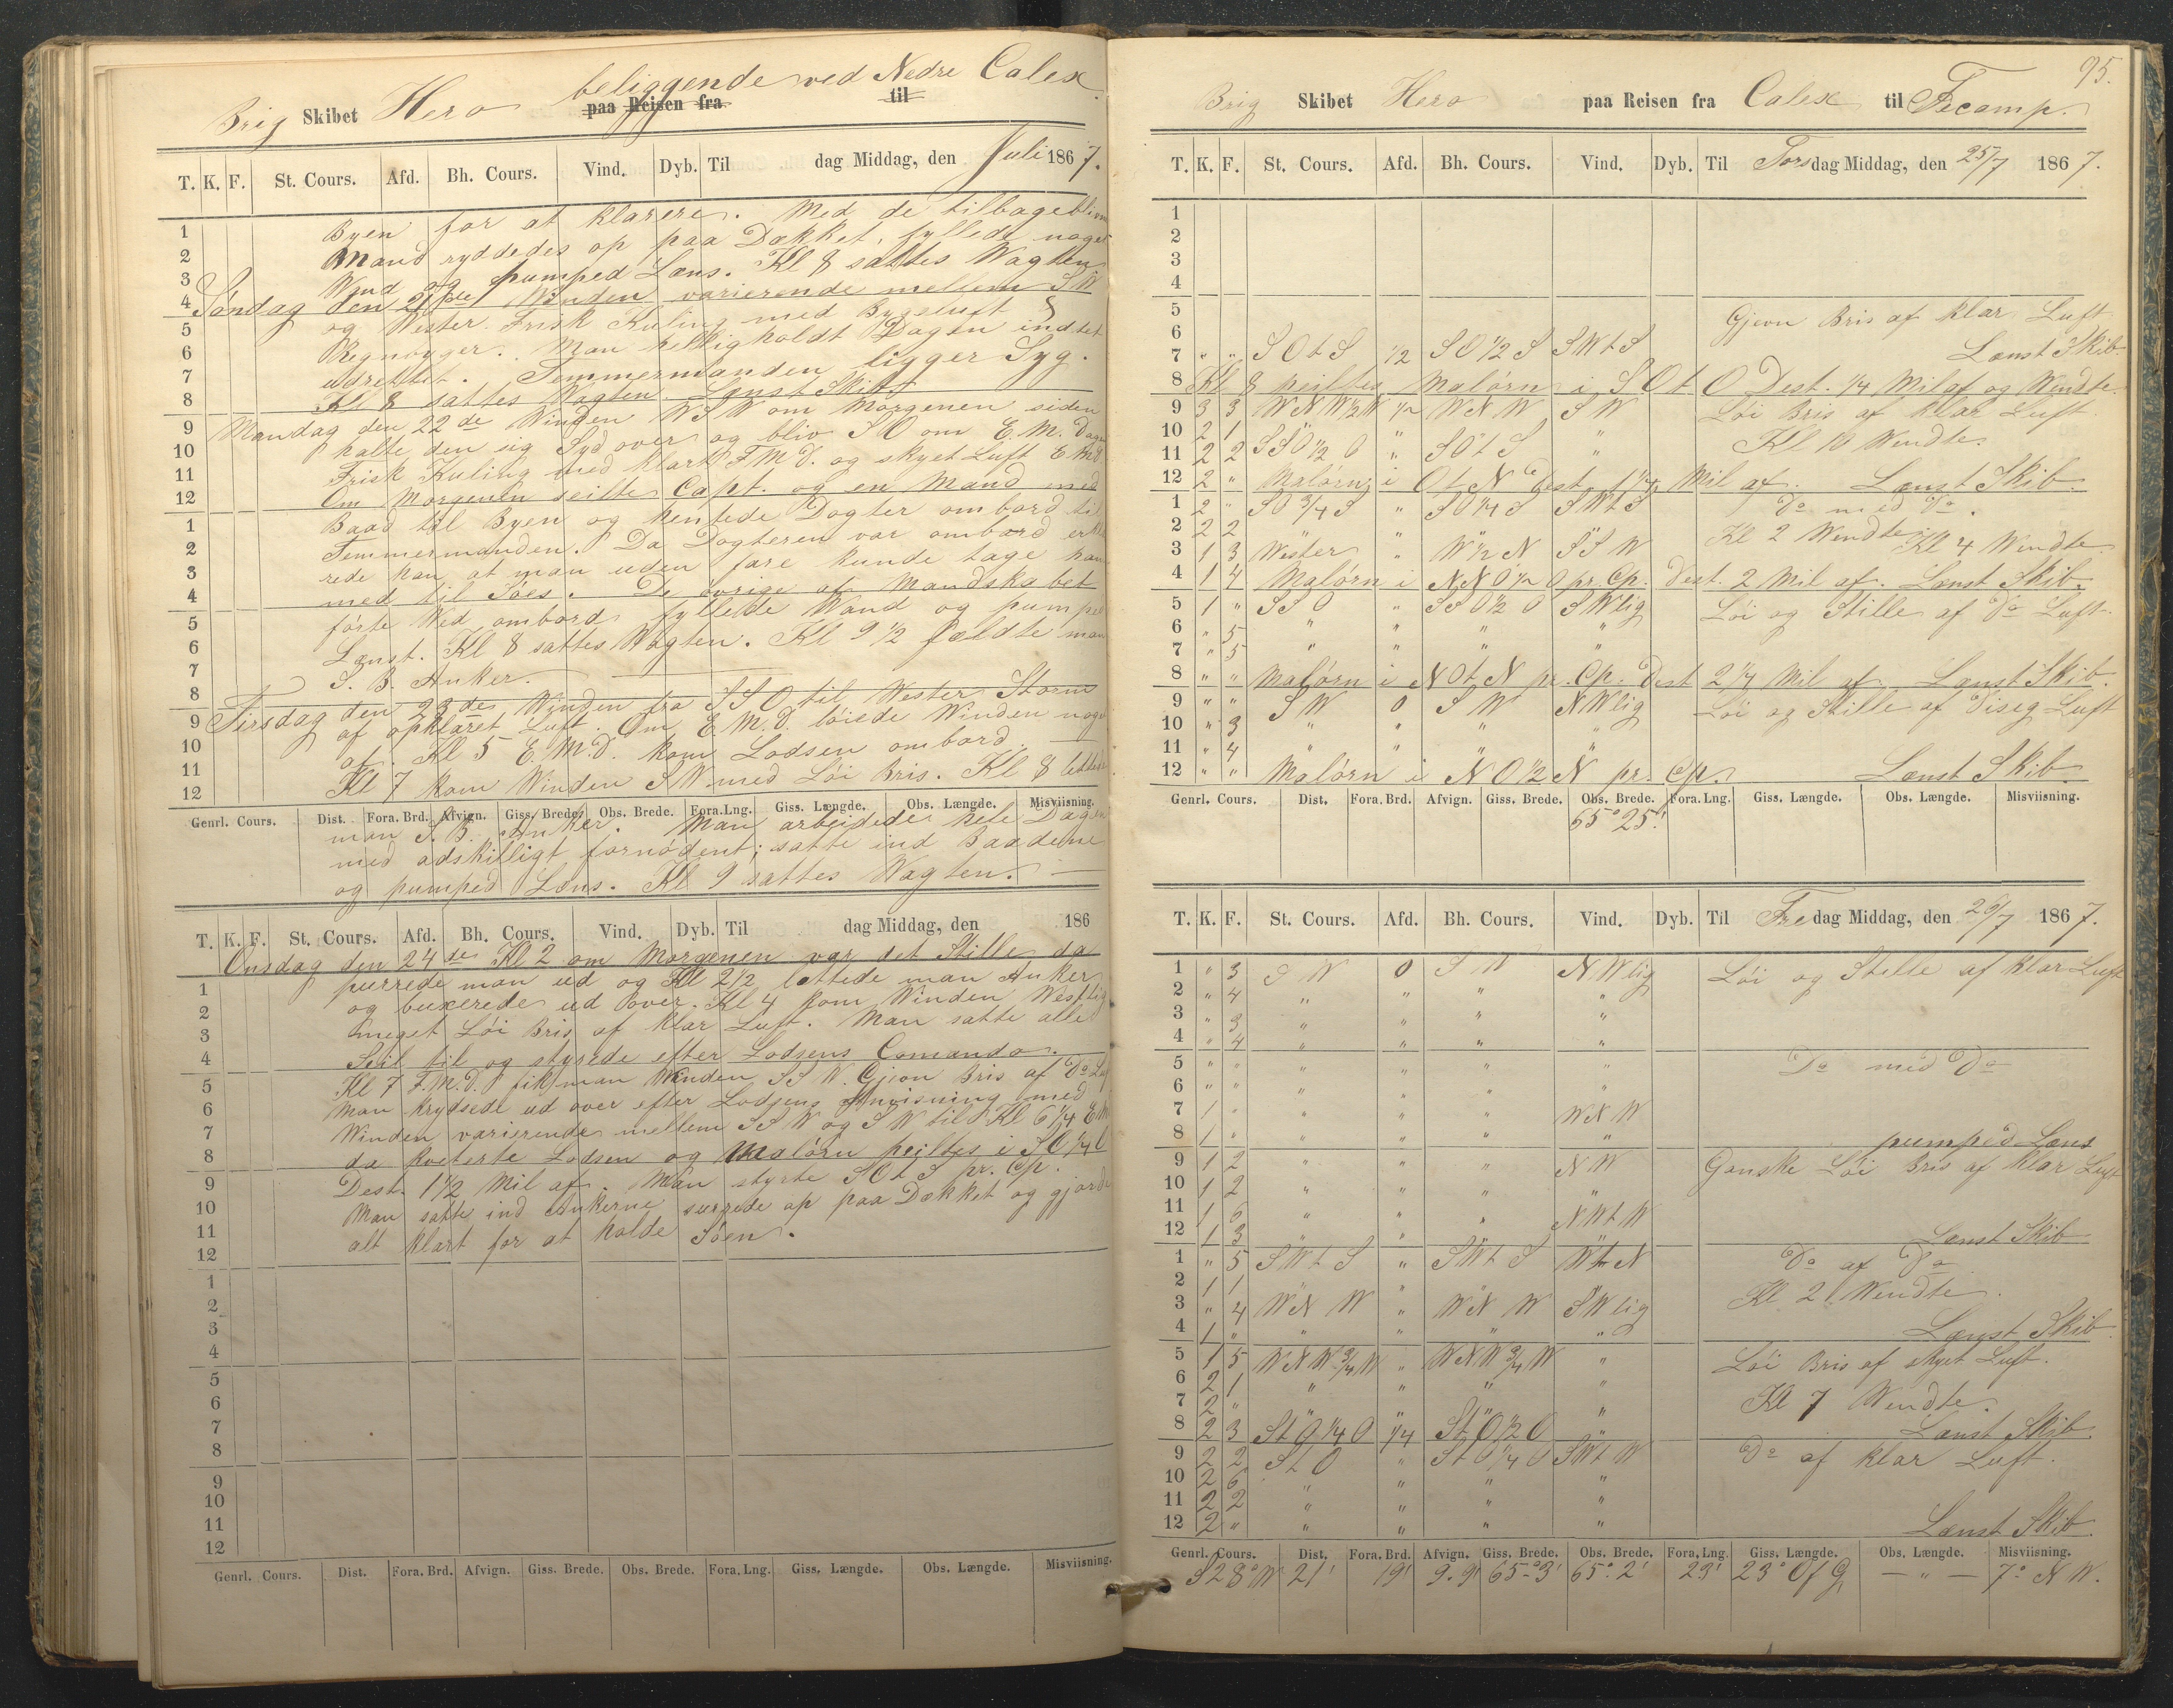 Brig Skibet Hero beliggende ved Nedre Calex.
paa Reisen fra til
T. K. F. St. Cours. Afd. Bh. Cours. Vind. Dyb. Til dag Middag, den Juli 1867.
Byen for at klarere. Med de tilbageblivn
Mand ryddedes op paa Dækket, fyllede noget
Vand og pumped Læns. Kl 8 sattes Vagten
Søndag den 21de Winden varierende mellem SW
og Wester. Frisk Kuling med Bygeluft &
Regnbyger. Man helligholdt Dagen indtet
udrettet. Temmermanden ligger Syg.
Kl 8 sattes Vagten. Lænst Skib
Mandag den 22de Winden WSW om Morgenen siden
halte den sig Syd over og bliv SO om E.M.Dagen
Frisk Kuling med klart F.M.D. og skyet Luft E.M.D.
Om Morgenen seilte Capt. og en Mand med
Baad til Byen og hentede Dogter ombord til
Temmermanden. Da Dogteren var ombord erklæ
rede han at man uden fare kunde tage ham
med til Søes. De øvrige af Mandskabet
førte Ved ombord fyllede Wand og pumped
Lænst. Kl 8 sattes Vagten. Kl 9 1/2 fældte man
S. B. Anker.
Tirsdag den 23de Winden fra SSO til Wester Storm
af opklaret Luft. Om E.M.D. løiede Winden noget
af. Kl 5 E.M.D. kom Lodsen ombord.
Kl 7 kom Winden SW med Løi Bris. Kl 8 lettede
Genrl. Cours. Dist. Fora. Brd. Afvign. Giss. Brede. Obs. Brede. Fora. Lng. Giss. Længde. Obs. Længde. Misviisning.
man S. B. Anker. Man arbeidede hele Dagen
med adskilligt fornødent; satte ind Baadene
og pumped Læns. Kl 9 sattes Vagten.
T. K. F. St. Cours. Afd. Bh. Cours. Vind. Dyb. Til dag Middag, den 186
Onsdag den 24de Kl 2 om Morgenen var det Stille da
purrede man ud og Kl 2 1/2 lettede man Anker
og buxerede ud over. Kl 4 kom Winden Westlig
meget Løi Bris af klar Luft. Man satte alle
Seil til og styrede efter Lodsens Comando.
Kl 7 F.M.D. fik man Winden SSW. Gjeon Bris af Do Luft
Man krydsede ud over efter Lodsens Anvisning med
Winden varierende mellem SSW og SW til Kl 6 1/4 EM
da kvterte Lodsen og Malørn peiltes i SO 1/4 O
Dest. 1 1/2 Mil af. Man styrte SOtS pr. Cp.
Man satte ind Ankerne surrede op paa Dækket og gjorde
alt klart for at holde Søen.
Genrl. Cours. Dist. Fora. Brd. Afvign. Giss. Brede. Obs. Brede. Fora. Lng. Giss. Længde. Obs. Længde. Misviisning.
95.
Brig Skibet Hero paa Reisen fra Calex til Fecamp.
T. K. F. St. Cours. Afd. Bh. Cours. Vind. Dyb. Til Torsdag Middag, den 25/7 1867.
1
2
3
4
5 Gjeon Bris af klar Luft
6
7 " " SOtS 1/2 SO 1/2 S SWtS Lænst Skib
8 Kl 8 peiltes Malørn i SOtO Dest. 1/4 Mil af og Wendte.
9 3 3 WNW 1/2 W 1/2 WNW SW Løi Bris af klar Luft.
10 2 1 " " " " Kl 10 Wendte.
11 2 2 SSO 1/2 O " SOtS "
12 2 " Malørn i OtN Dest. 1 1/4 Mil af. Lænst Skib.
1 2 " SO 3/4 S " SO 1/4 S SWtS Do med Do.
2 2 2 " " " " Kl 2 Wendte
3 1 3 Wester " W 1/2 N SSW Kl 4 Wendte
4 1 4 Malørn i NNO 1/2 O pr. Cp. Dest. 2 Mil af. Lænst Skib.
5 1 " SSO " SSO 1/2 O SWlig Løi og Stille af Do Luft.
6 " 5 " " " "
7 " 5 " " " "
8 " " Malørn i NOtN pr. Cp. Dest 2 1/4 Mil af. Lænst Skib.
9 " " SW 0 SW NWlig Løi og Stille af Diseg Luft
10 " 3 " " " "
11 " 4 " " " "
12 " " Malørn i NO 1/2 N pr. Cp. Lænst Skib.
Genrl. Cours. Dist. Fora. Brd. Afvign. Giss. Brede. Obs. Brede. Fora. Lng. Giss. Længde. Obs. Længde. Misviisning.
65° 25'
T. K. F. St. Cours. Afd. Bh. Cours. Vind. Dyb. Til Fredag Middag, den 26/7 1867.
1 " 3 SW 0 SW NWlig Løi og Stille af klar Luft
2 " 4 " " " "
3 " 3 " " " "
4 " 4 " " " "
5 " " " " " " Do med Do
6 " " " " " "
7 1 " " " " WNW
8 1 " " " " " pumped Læns
9 1 2 " " " NW Ganske Løi Bris af klar Luft
10 1 2 " " " "
11 1 6 " " " NWtW
12 1 3 " " " Lænst Skib
1 " 5 SWtS " SWtS WtN Do af Do
2 1 1 " " " " Kl 2 Wendte.
3 " 4 WNW " WNW SWlig
4 1 " " " " " Lænst Skib.
5 1 5 WNW 3/4 W " WNW 3/4 W " Løi Bris af skyet Luft.
6 2 1 " " " "
7 2 " " " " " Kl 7 Wendte.
8 2 3 StO 1/4 O 1/4 StO 1/2 O " Lænst Skib.
9 2 2 StO " StO 1/4 O SWtW Do af klar Luft.
10 2 6 " " " "
11 2 2 " " " "
12 2 " " " " " Lænst Skib.
Genrl. Cours. Dist. Fora. Brd. Afvign. Giss. Brede. Obs. Brede. Fora. Lng. Giss. Længde. Obs. Længde. Misviisning.
S28°W 21' 19' 9.9' 65° 3' 65° 2' 23' 23° Of G — " — 7° NW.